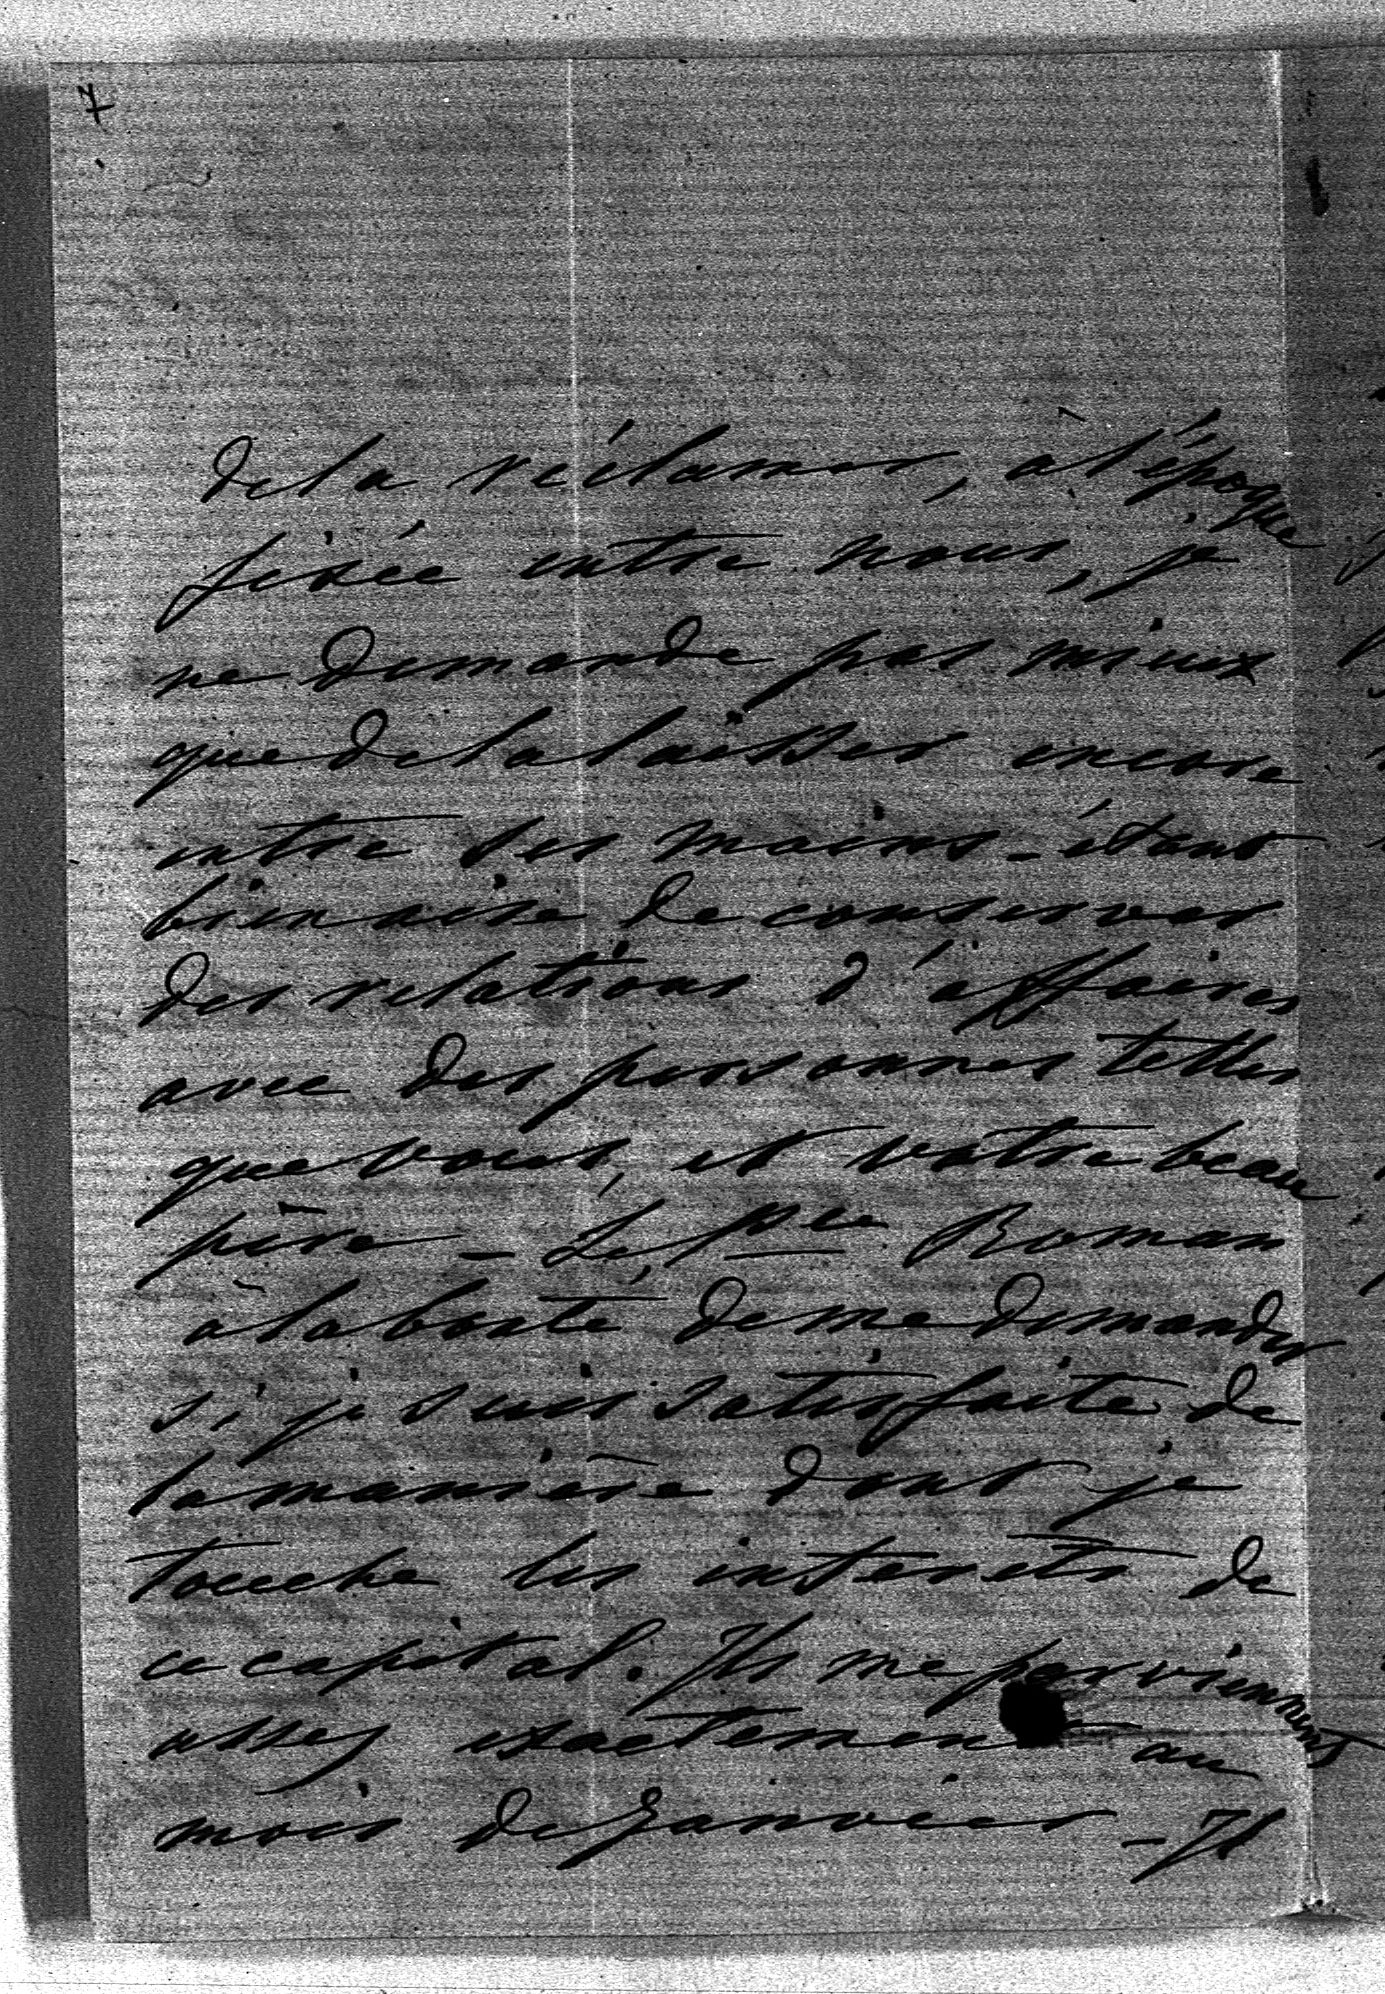 7
de la réclamer, à l'époque
fixée entre nous, je
ne demande pas mieux
que de la laisser encore
entre ses mains - étant
bien aise de conserver
des relations d'affaires
avec des personnes telles
que vous, et votre beau
père - Le Pce Roman
à la bonté, de me demander
si je suis satisfaite de
la manière dont je
touche les interets de
ce capital. Ils me parviennent
assez exactement au
mois de Janvier - Il